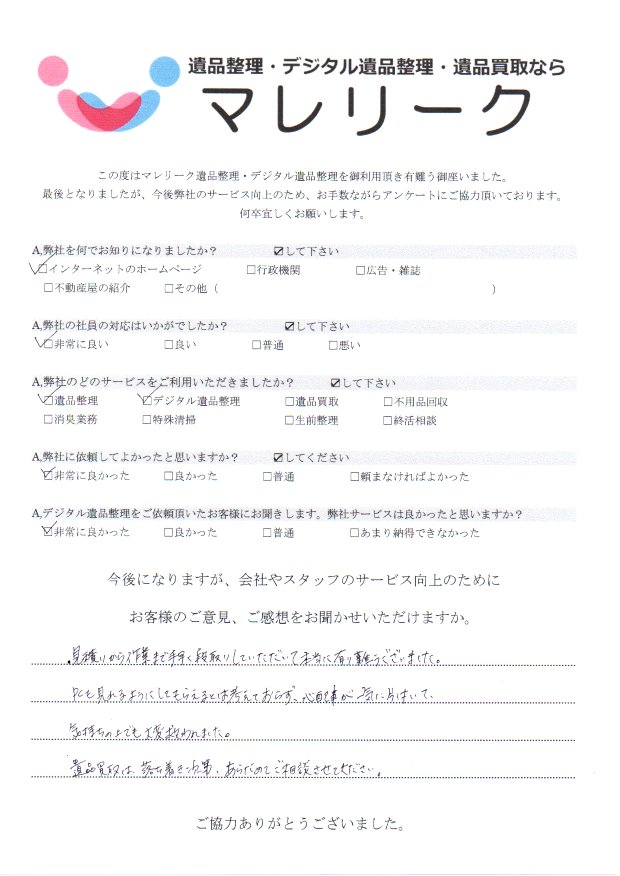 遺品整理・デジタル遺品整理・遺品買取なら
マレリーク
この度はマレリーク遺品整理・デジタル遺品整理を御利用頂き有難う御座いました。
最後となりましたが、今後弊社のサービス向上のため、お手数ながらアンケートにご協力頂いております。
何卒宜しくお願いします。
A,弊社を何でお知りになりましたか? ☑して下さい
☑インターネットのホームページ □行政機関 □広告・雑誌
□不動産屋の紹介 □その他( )
A,弊社の社員の対応はいかがでしたか? ☑して下さい
☑非常に良い □良い □普通 □悪い
A,弊社のどのサービスをご利用いただきましたか? ☑して下さい
☑遺品整理 ☑デジタル遺品整理 □遺品買取 □不用品回収
□消臭業務 □特殊清掃 □生前整理 □終活相談
A,弊社に依頼してよかったと思いますか? ☑してください
☑非常に良かった □良かった □普通 □頼まなければよかった
A,デジタル遺品整理をご依頼頂いたお客様にお聞きします。弊社サービスは良かったと思いますか?
☑非常に良かった □良かった □普通 □あまり納得できなかった
今後になりますが、会社やスタッフのサービス向上のために
お客様のご意見、ご感想をお聞かせいただけますか。
見積りから作業まで手早く段取りしていただいて本当に有り難うございました。
PCも見れるようにしてもらえるとは考えておらず、心配事が一気に
気持ちの上でも大変救われました。
遺品買取は、落ち着き次第、あらためてご相談させてください。
ご協力ありがとうございました。